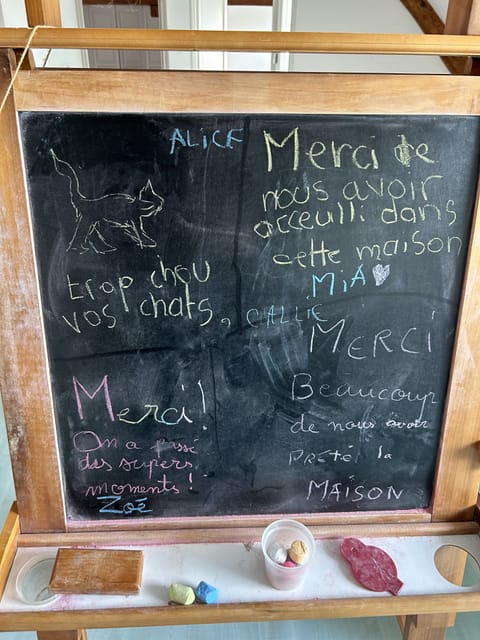 ALICE
Merci de
nous avoir
acceulli dans
cette maison
MiA
trop chou
vos chats,
CALLIE
MERCi
Beaucoup
de nous avoir
PRÊTÉ la
MAiSON
Merci!
On a passé
des supers
moments!
Zoé